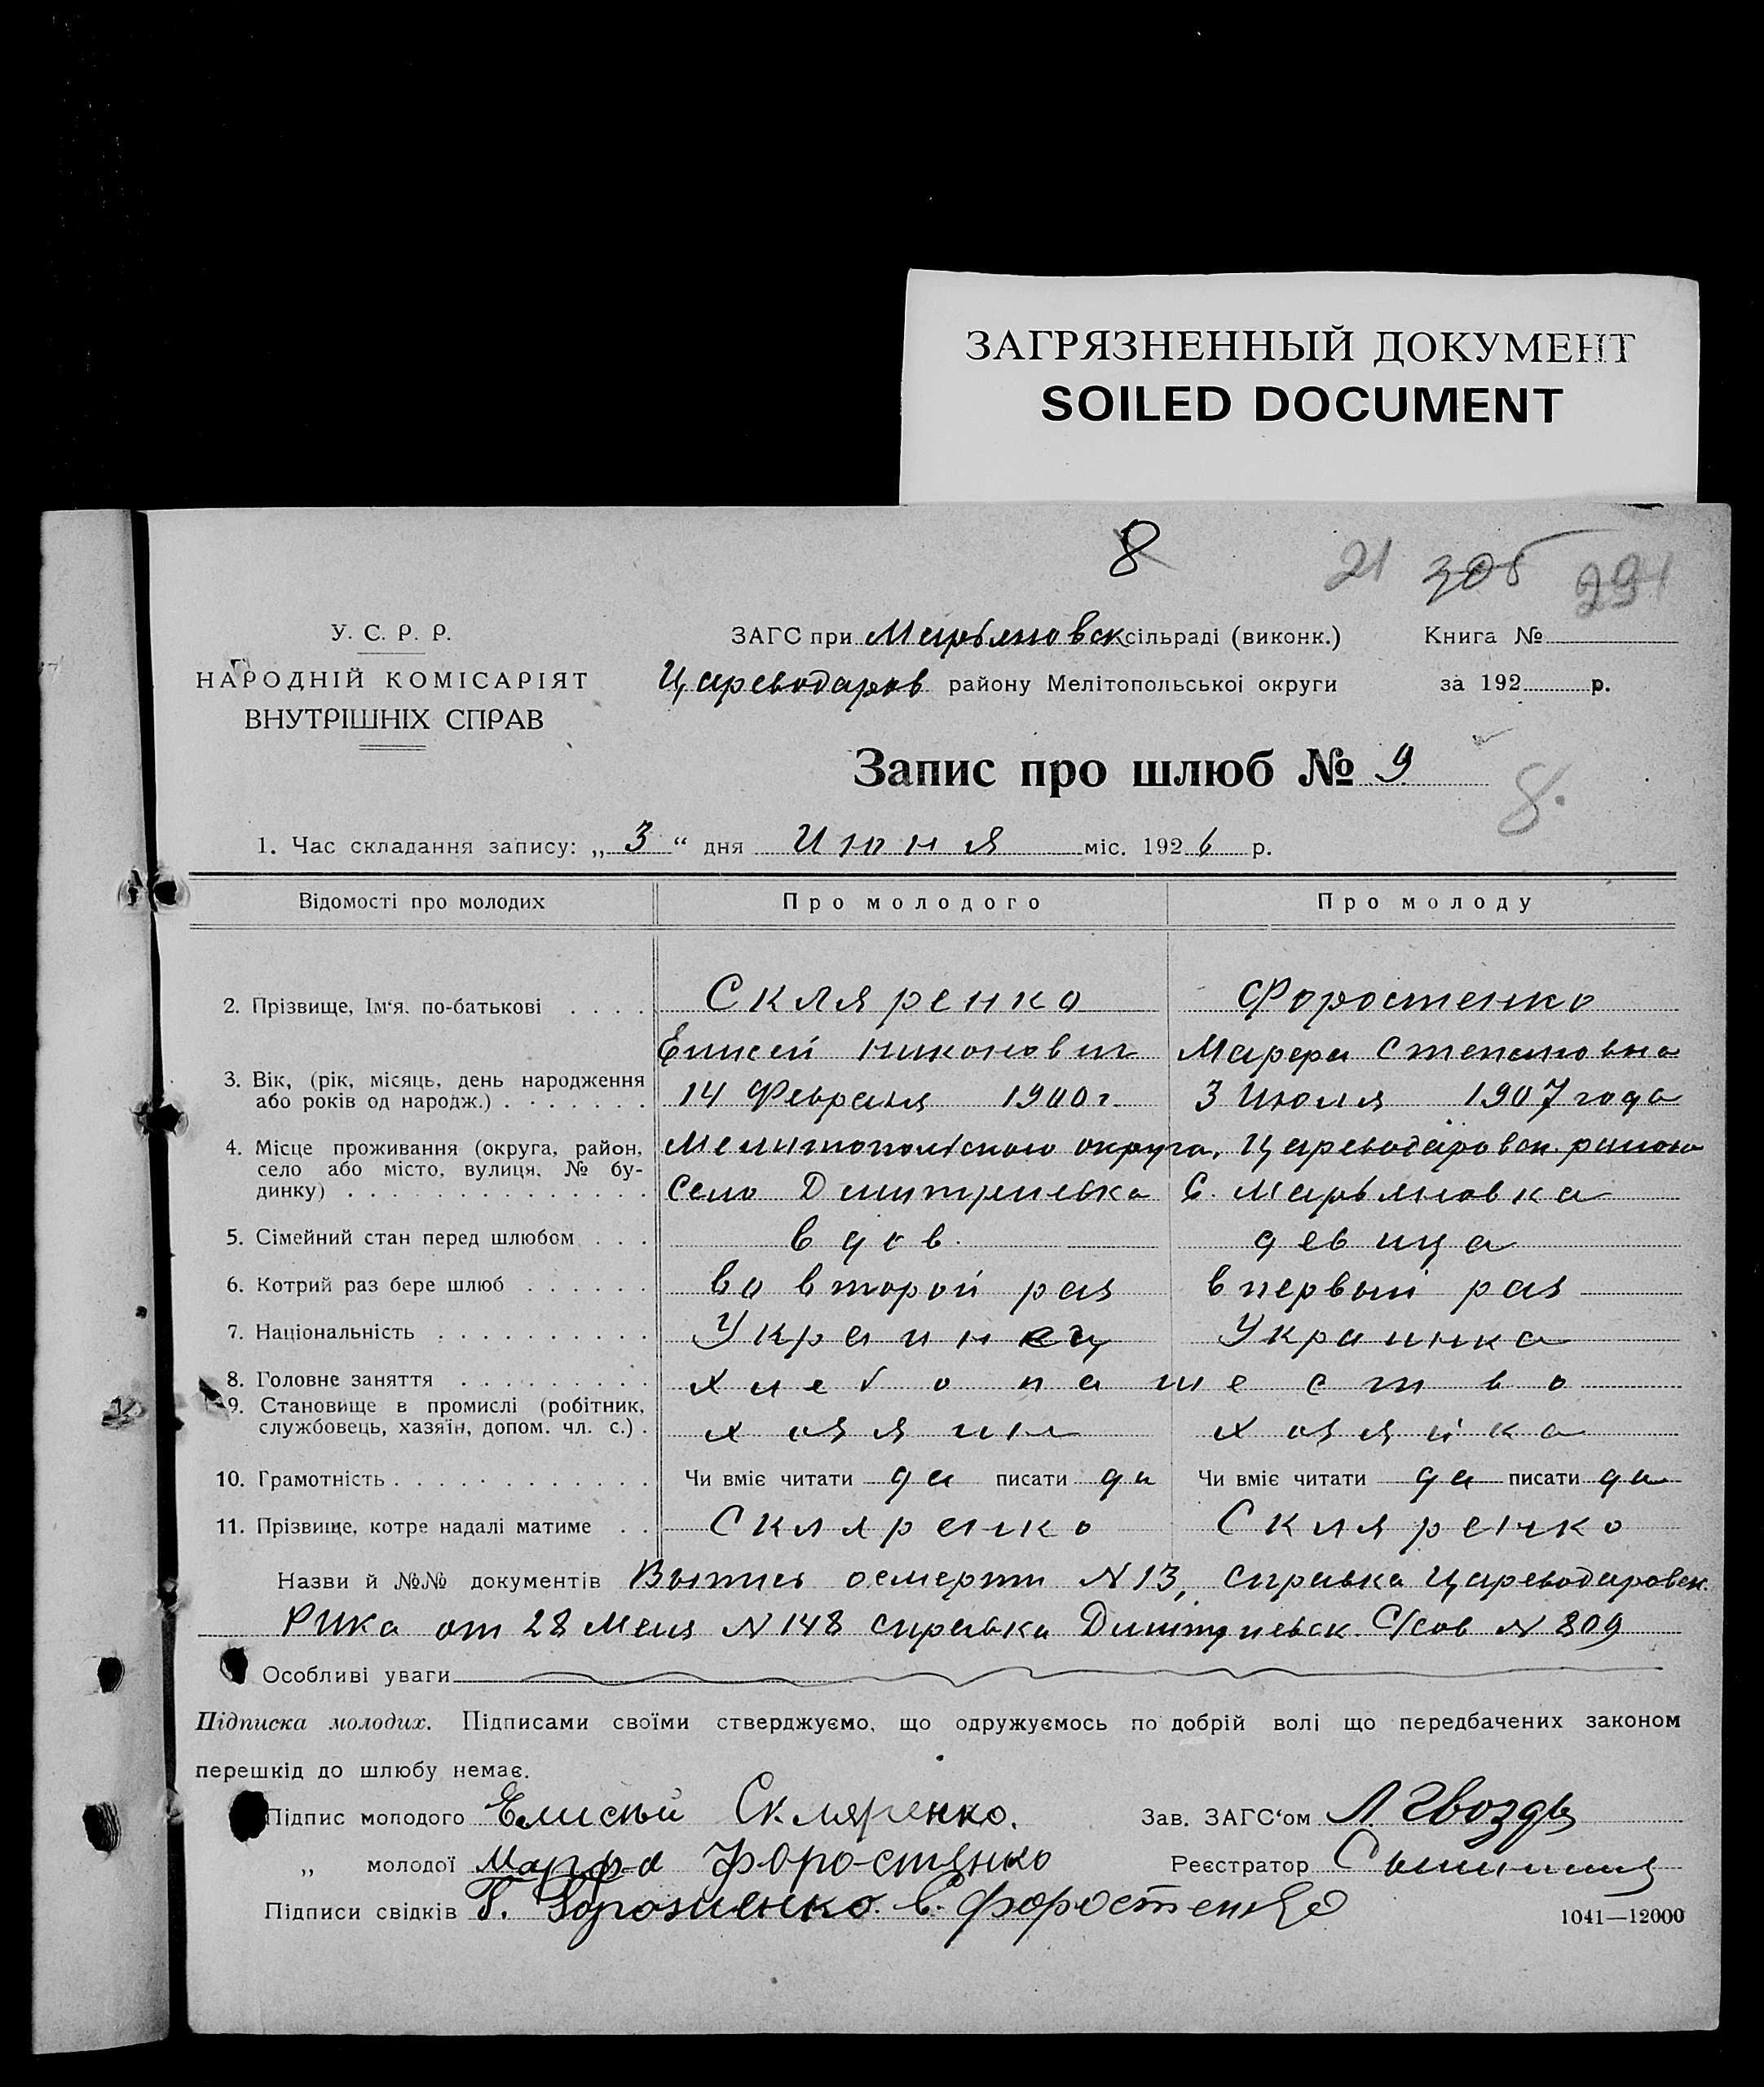 ЗАГРЯЗНЕННЫЙ ДОКУМЕНТ
SOILED DOCUMENT
8
21 305 291
У. С. Р. Р.
НАРОДНІЙ КОМІСАРІЯТ
ВНУТРІШНІХ СПРАВ
ЗАГС при Марьяновск сільраді (виконк.) Книга №
Цареводаров району Мелітопольської округи за 192 р.
Запис про шлюб № 9
8.
1. Час складання запису: „ 3 “ дня Июня міс. 192 6 р.
Відомості про молодих Про молодого Про молоду
2. Прізвище, Ім‘я, по-батькові Скляренко Форостенко
Елисей Никонович Марфа Степановна
3. Вік, (рік, місяць, день народження
або років од народж.) 14 Февраля 1900 г. 3 Июля 1907 года
4. Місце проживання (округа, район, Мелитопольского округа, Цареводаровск. района
село або місто, вулиця, № бу-
динку) Село Дмитриевка С. Марьяновка
5. Сімейний стан перед шлюбом вдов. девица
6. Котрий раз бере шлюб во второй раз впервый раз
7. Національність Украинец Украинка
8. Головне заняття хлебопашество
9. Становище в промислі (робітник,
службовець, хазяїн, допом. чл. с.) хозяин хозяйка
10. Грамотність Чи вміє читати да писати да Чи вміє читати да писати да
11. Прізвище, котре надалі матиме Скляренко Скляренко
Назви й №№ документів Выпись осмерти N 13, справка Цареводаровск.
РИКа от 28 Мая N 148 справка Дмитриевск. С/сов N 809
Особливі уваги
Підписка молодих. Підписами своїми стверджуємо, що одружуємось по добрій волі що передбачених законом
перешкід до шлюбу немає.
Підпис молодого Елисей Скляренко. Зав. ЗАГС‘ом Л. Гвоздь
„ молодої Марфа Форостенко Реєстратор
Підписи свідків С. Форостенко
1041—12000